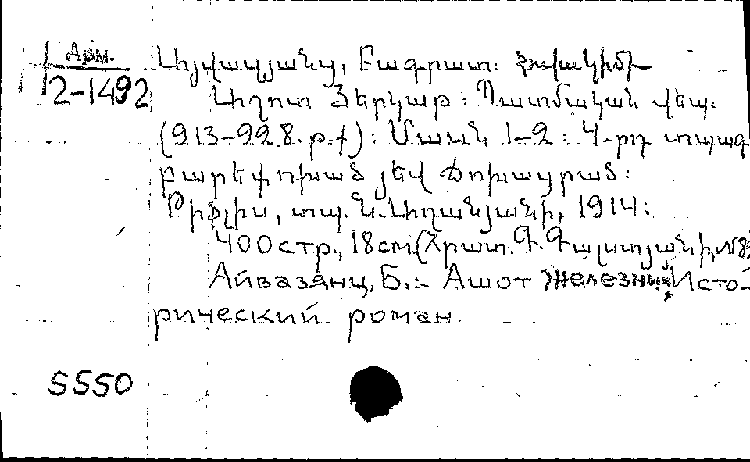 Арм.
2-1492
Այվազյանց, Բագրատ.
Աշոտ Յերկաթ: Պատմական վեպ.
(913-928 թ.թ): Մասն 1-2: 4-րդ տպագ
բարեփոխած յեվ ծոխացրած:
Թիֆլիս, տպ. Ն. Աղանյանի, 1914:
400 стр., 18 см. (Հրատ. Գ. Գալստյանի, №8
Айвазянц, Б. - Ашот Железный. Исто-
рический роман.
5550